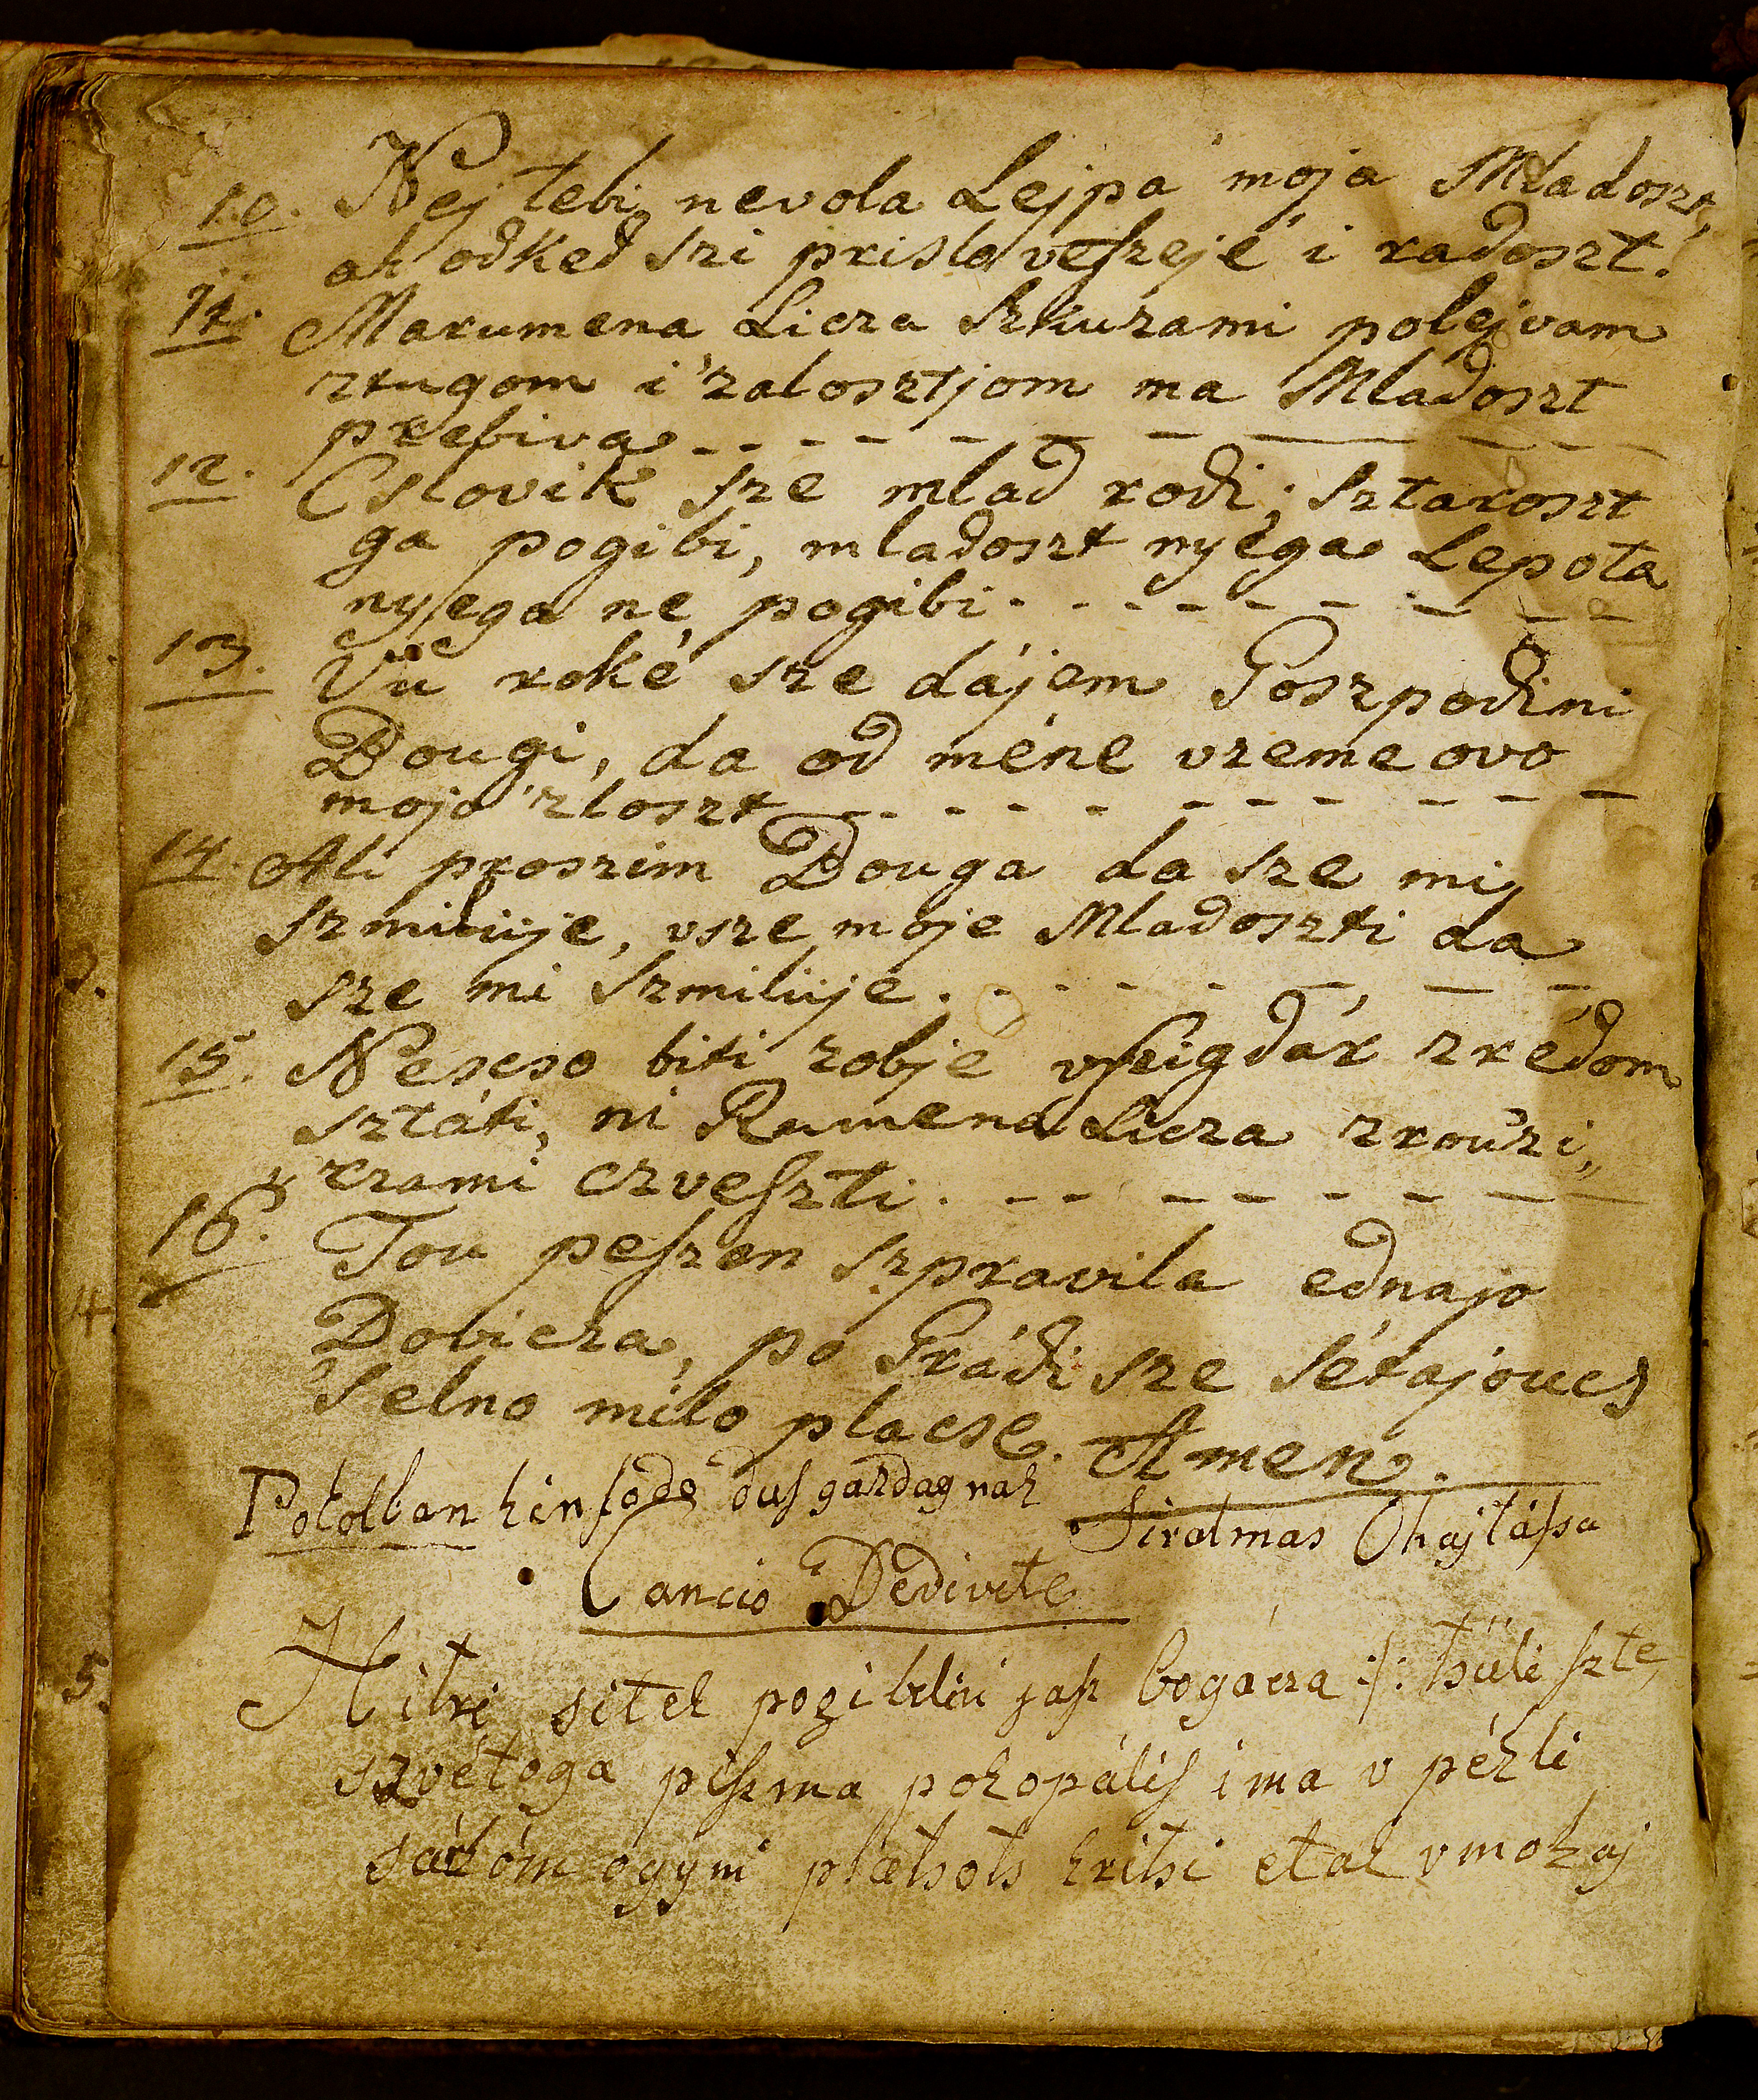 10. Nej tebi nevola Lejpa moja Mladoszt,
ah odked szi prisla veszejé i radoszt.
11. Marumena Licza szkuzami polejvam
ztugom i 'zalosztjom ma Mladoszt
prebiva - - - - - - - - - -
12. Cslovik sze mlad rodi; sztaroszt
ga pogibi, mladoszt nyéga Lepota
nyega ne pogibi - - - - - - - - -
13. Vu roké sze dájem Goszpodini
Bougi, da od méne vzeme ovo
mojo 'zloszt - - - - - - - - - -
14. Ali proszim Bouga da sze mi
szmilüje, vsze moje Mladoszti da
sze mi szmilüje. - - - - - - - -
15. Nescso biti zobje vszigdár zrédom
sztáti, ni Rumena Licza zrou'zi„
czami czveszti. - - - - - - - -
16. Tou peszen szpravila ednajo
Dovicza, po Grádi sze sétajoucs
'selno milo placse. Amen.
Pokolban kinlodo dus gazdagnak
Siralmas Ohajtássa
Cancio De Divite
Hitri sitek pogibliú jasz bogácza :/: tsüli szte
szvétoga piszma pokopális ima v pékli
sárkóm ogym platsots kritsi etak v mokaj